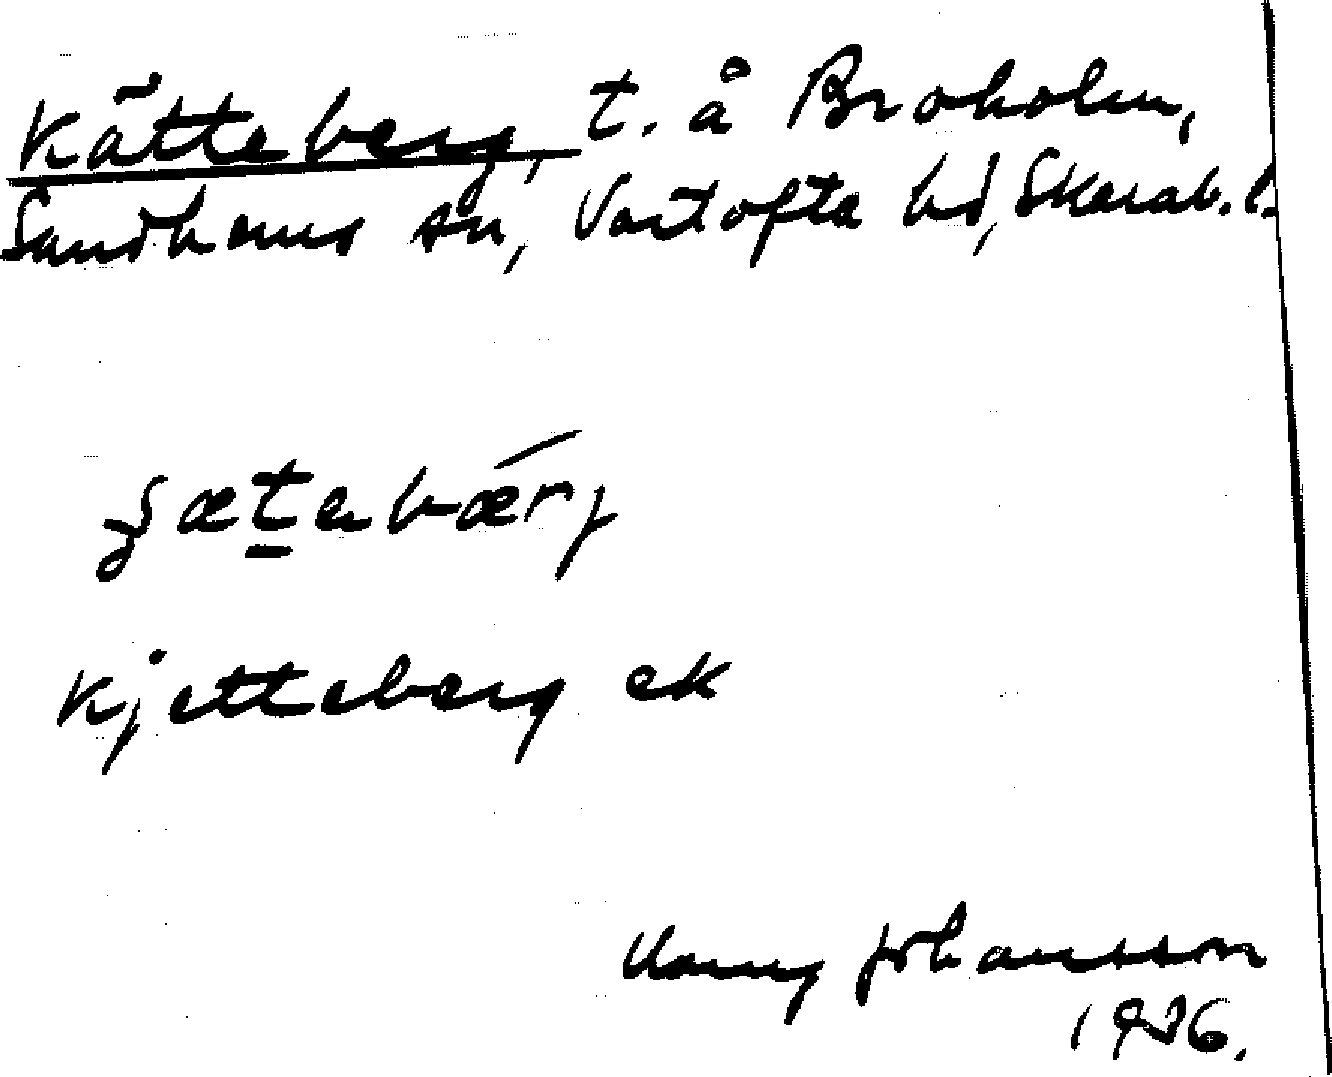 Kätteberg, t. å Broholm,
Sandhems sn, Vartofta hd, Skarab. l.
ʂæt̲ebærj
Kjetteberg ek
Johansson
1926.